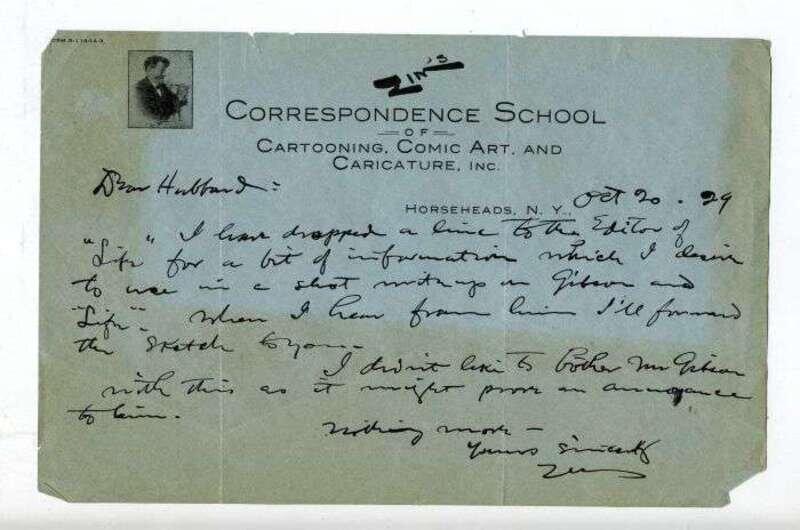 ZIM'S
CORRESPONDENCE SCHOOL
OF
CARTOONING, COMIC ART, AND
CARICATURE, INC.
HORSEHEADS, N. Y., Oct 20 - 29
Dear Hubbard:
I have dropped a line to the Editor of
"Life" for a bit of information which I desire
to use in a short writeup on Gibson and
"Life". When I hear from him I'll forward
the sketch to you -
I didn't like to bother Mr Gibson
with this as it might prove an annoyance
to him.
Nothing more -
Yours Sincerely
Zim